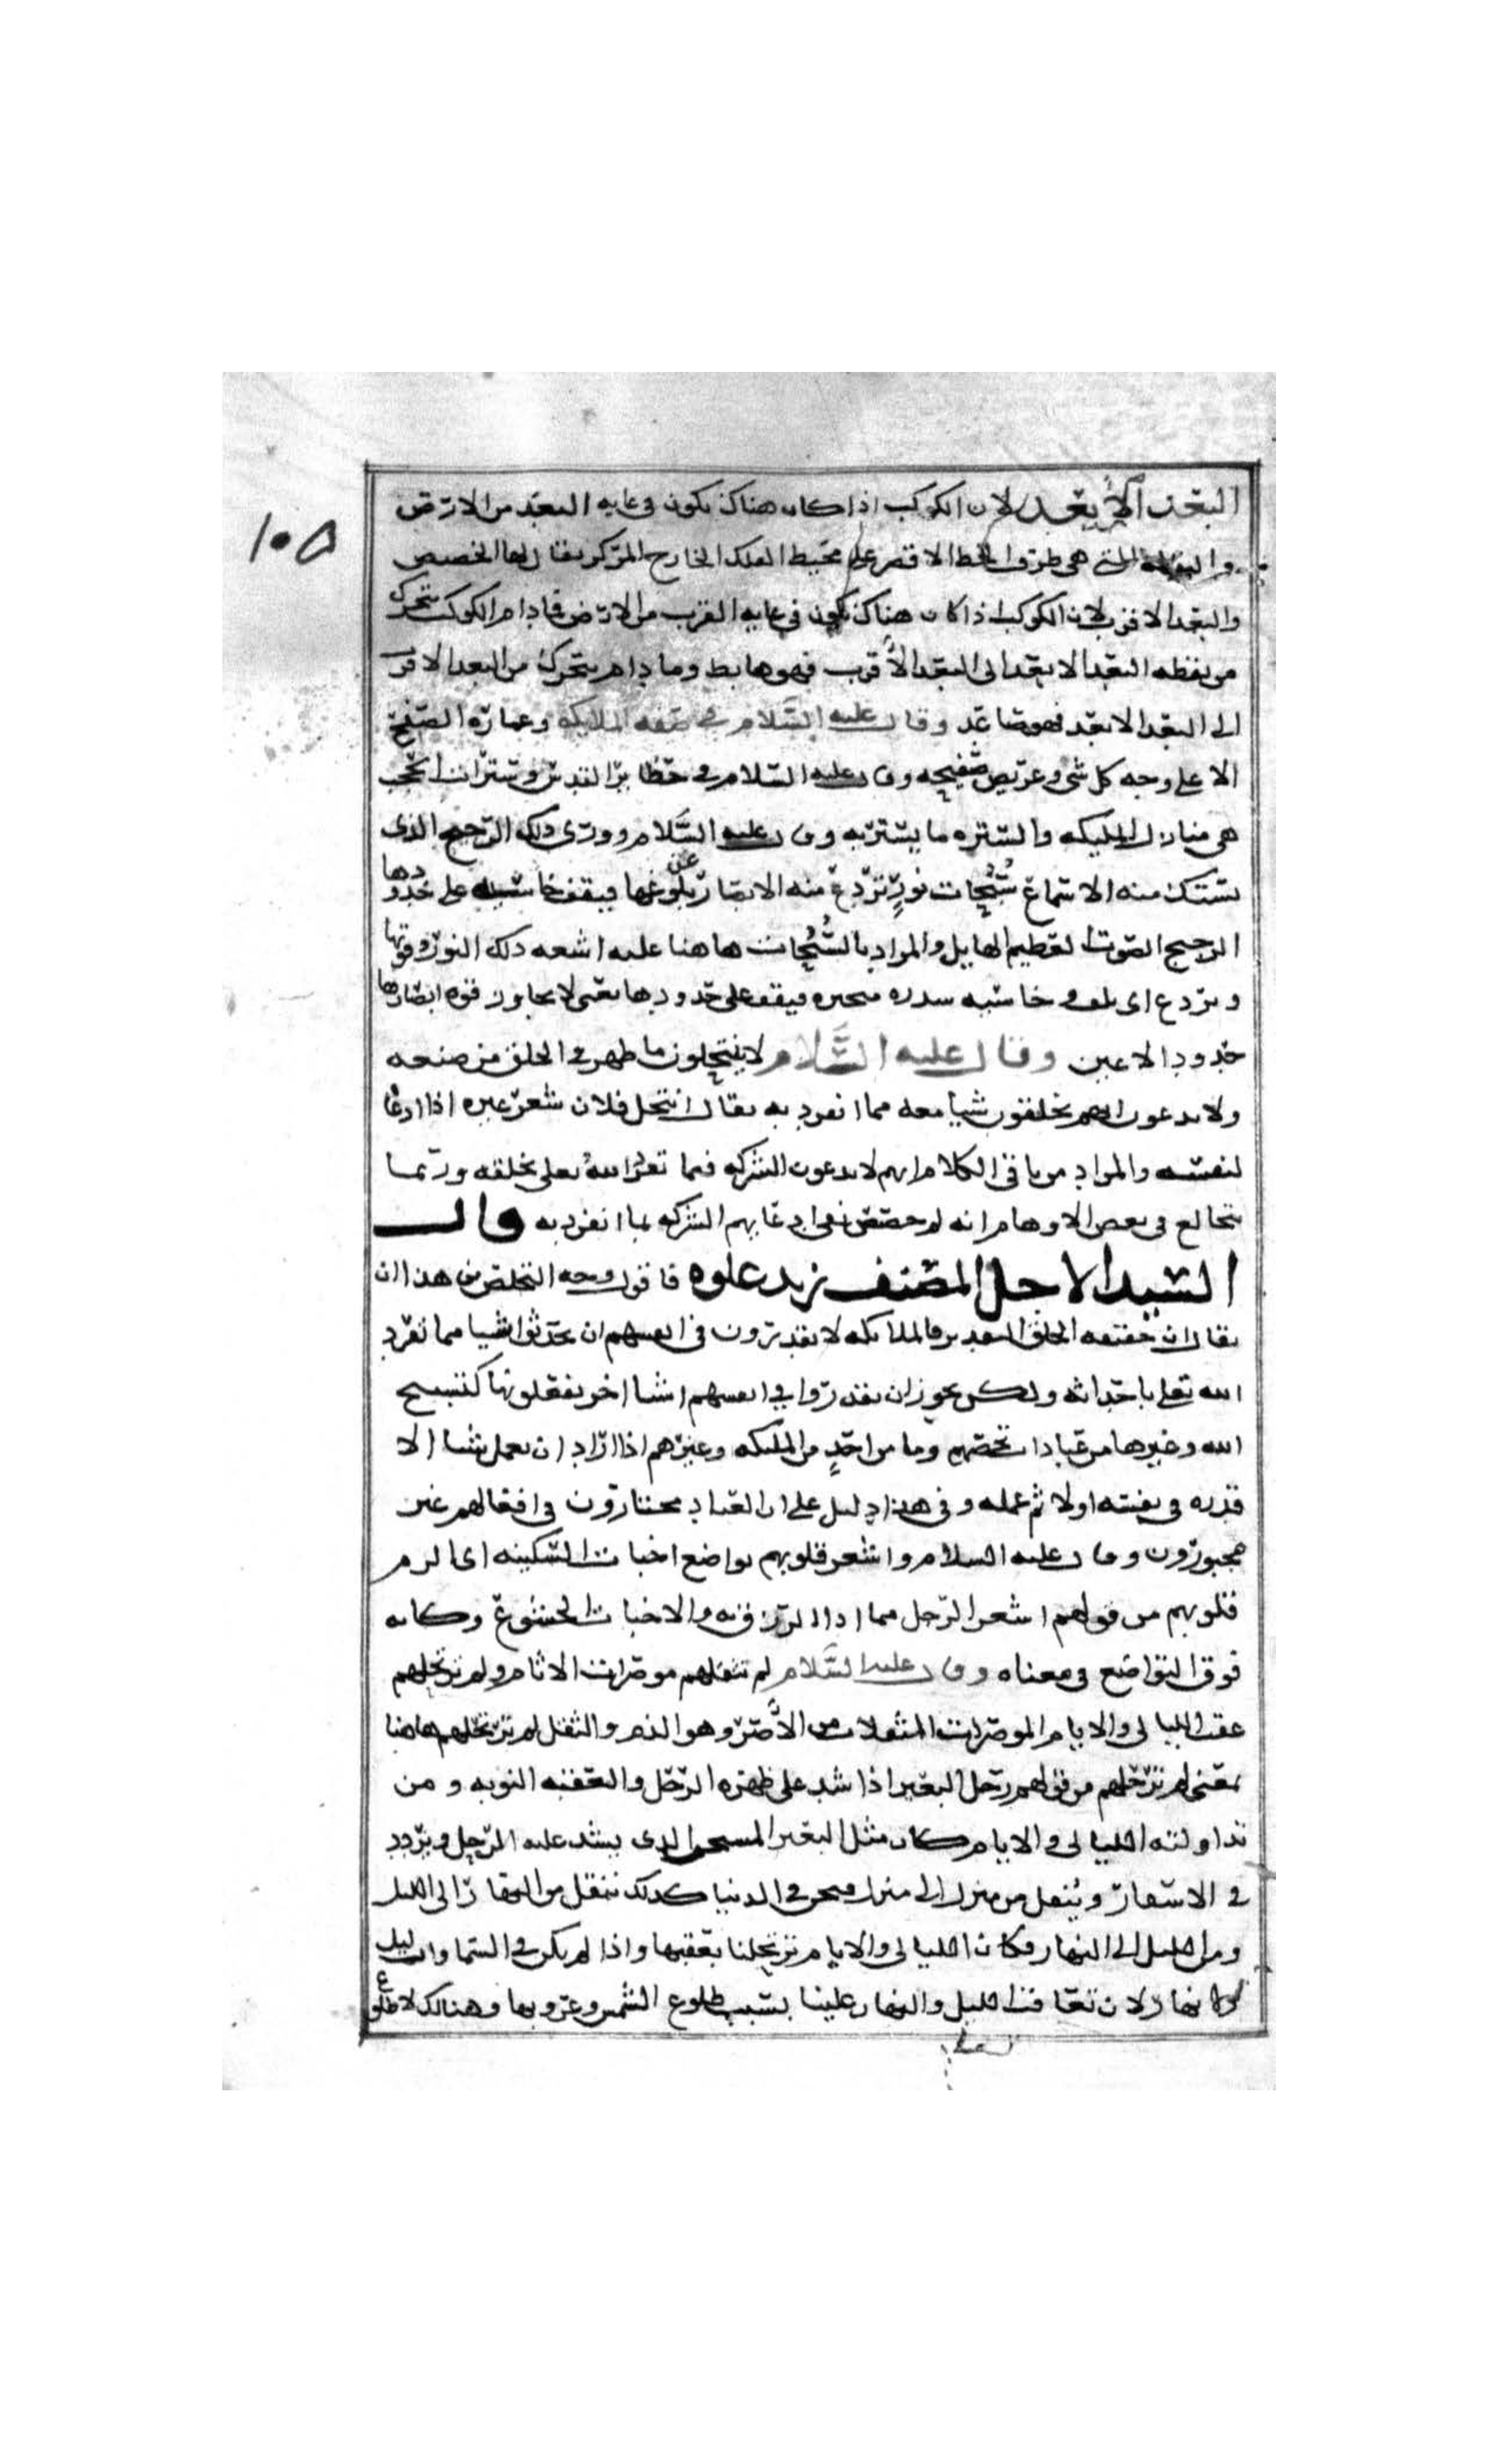 ١٠٥
البعد الأبعد لان الكوكب اذا كان هناك يكون في غايه البعد من الارض
والنقطه التي هي طرف الخط الاقصر على محيط الفلك الخارج المركز يقال لها الحضيض
والبعد الاقرب لان الكوكب اذا كان هناك يكون في غايه القرب من الارض فما دام الكوكب يتحرك
من نقطه البعد الابعد الى البعد الأقرب فهو هابط وما دام يتحرك من البعد الاقرب
الى البعد الابعد فهو صاعد وقال عليه السلام في صفه الملايكه وعماره الصفيح
الاعلى وجه كل شي وعريض صفيحه وقال عليه السلام في حظاير القدس وسترات الحجب
هي منازل الملايكه والستره ما يستتر به وقال عليه السلام وورى ذلك الرجيج الذي
تستك منه الاسماع سُبُحات نورٍ تردع منه الابصار عن بلوغها فيقف خاسيه على حدودها
الرجيج الصوت العظيم الهايل والمراد بالسُّبُحات هاهنا عليه اشعه ذلك النور وقوتها
وتردع اي تكف وخاسيه سدره متحيره فيقف على حدودها يعني لا يجاوز قوه ابصارها
حدود الاعين وقال عليه السَّلام لا ينتحلون ما ظهر في الخلق من صنعه
ولا يدعون انهم يخلقون شيا معه مما انفرد به يقال انتحل فلان شعر غيره اذا ادعا
لنفسه والمراد من باقي الكلام انهم لا يدعون الشركه فيما تفرد الله تعلى بخلقه وربما
يتخالع في بعض الاوهام انه لم خصص نفي ادعايهم الشركه بما انفرد به قال
السيد الاجل المصنف زيد علوه فاقول وجه التخلص من هذا ان
يقال ان حقيقه الخلق التقدير فالملايكه لا يقدرون في انفسهم ان يحدثوا شيا مما تفرد
الله تعلى باحداثه ولكن يجوز ان يقدروا في انفسهم اشيا اخر يفعلونها كتسبيح
الله وغيرها من عبادات تخصهم وما من احدٍ من الملايكه وغيرهم اذا اراد ان يعمل شيا الا
قدره في نفسه اولا ثم عمله وفي هذا دليل على ان العباد مختارون في افعالهم غير
مجبورون وقال عليه السلام واشعر قلوبهم تواضع اخبات السكينه اي الزم
قلوبهم من قولهم اشعر الرجل هما اذا الزق به والاخبات الخشوع وكانه
فوق التواضع في معناه وقال عليه السَّلام لم تثقلهم موصرات الاثام ولم ترتحلهم
عقب الليالي والايام الموصرات المثقلات من الأصر وهو الذم والثقل لم ترتحلهم هاهنا
بمعنى لم ترحلهم من قولهم رحل البعير اذا شد على ظهره الرحل والعقبه النوبه ومن
تداولته الليالي والايام كان مثل البعير المسخر الذي يشد عليه الرحل ويردد
في الاسفار ويُنقل من منزل الى منزل فنحن في الدنيا كذلك ننتقل من النهار الى الليل
ومن الليل الى النهار فكان الليالي والايام ترتحلنا بعقبها واذا لم يكن في السماوات ليل
ولا نهار لان تعاقب الليل والنهار علينا بسبب طلوع الشمس وغروبها وهنالك لا طلوع